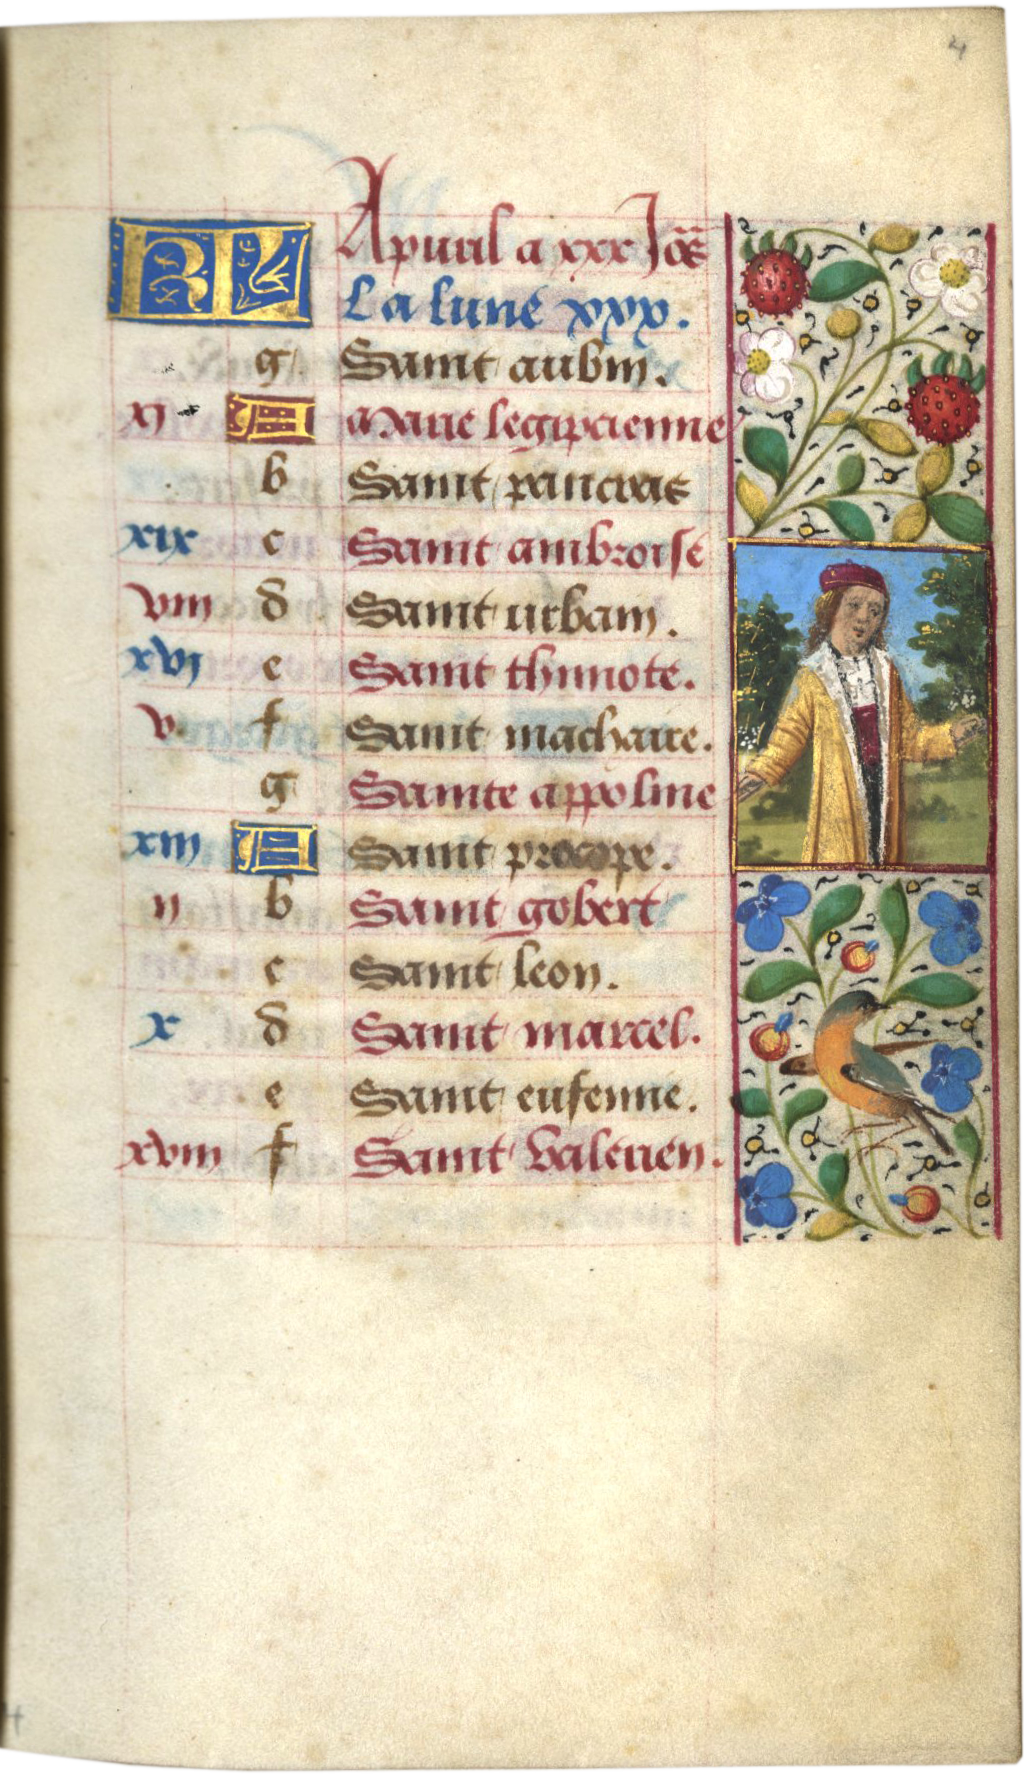 4
KL Apuril a xxx Jo͞s
La lune xxx.
g Saint aubin.
xj A Marie legipcienne
b Saint pancras
xix c Saint ambroise
viii d Saint urbain.
xvj e Saint thimote.
v. f Saint machaire.
g Sainte appoline
xiii A Saint procope.
ii b Saint gobert
c Saint leon.
x d Saint marcel.
e Saint eufemie.
xviii f Saint Valerien.
4